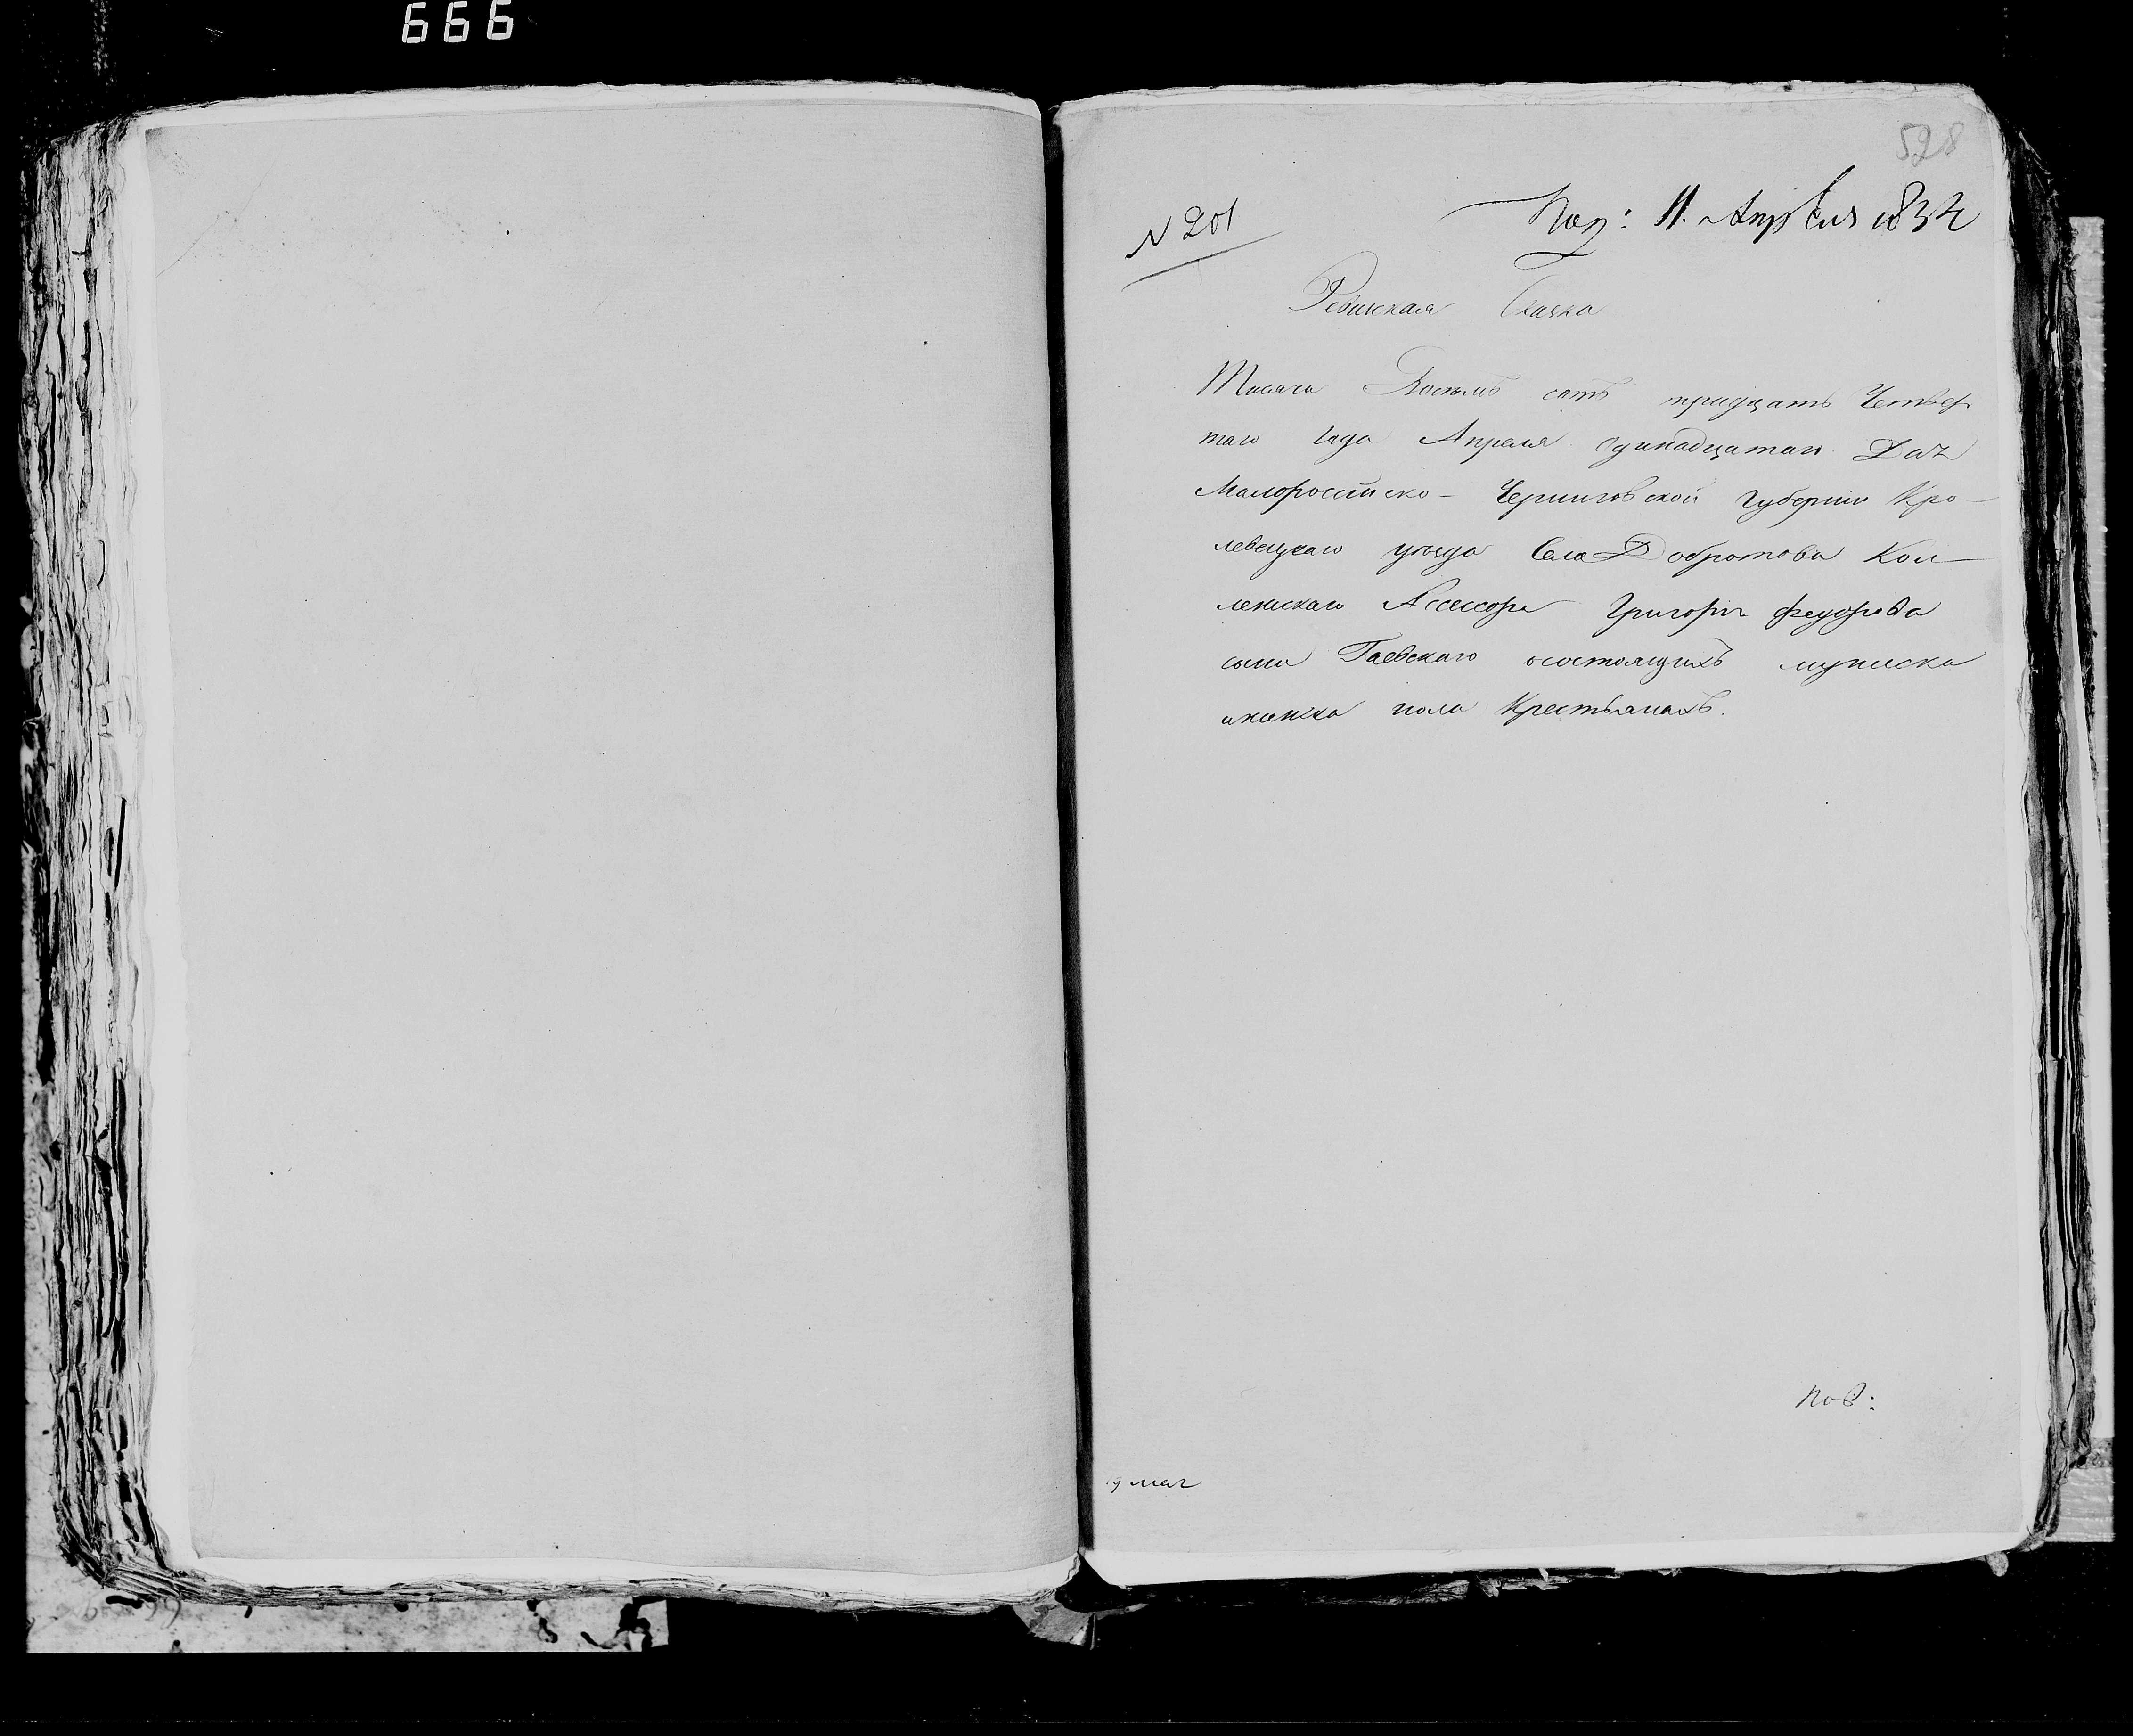 666
528
N 201
Пол: 11. Апреля 1834
Ревизская Сказка
Тысяча Восемь сотъ тридцать Четвер
таго года Апреля одинадцатаго Дня
Малоросійско- Черниговской губернии Кро-
левецкаго уезда Села Добротова Кол-
лежскаго Асессора Григорія Федорова
сына Гаевскаго осостоящихъ мужеска
иженска пола Крестьянахъ.
Пов: